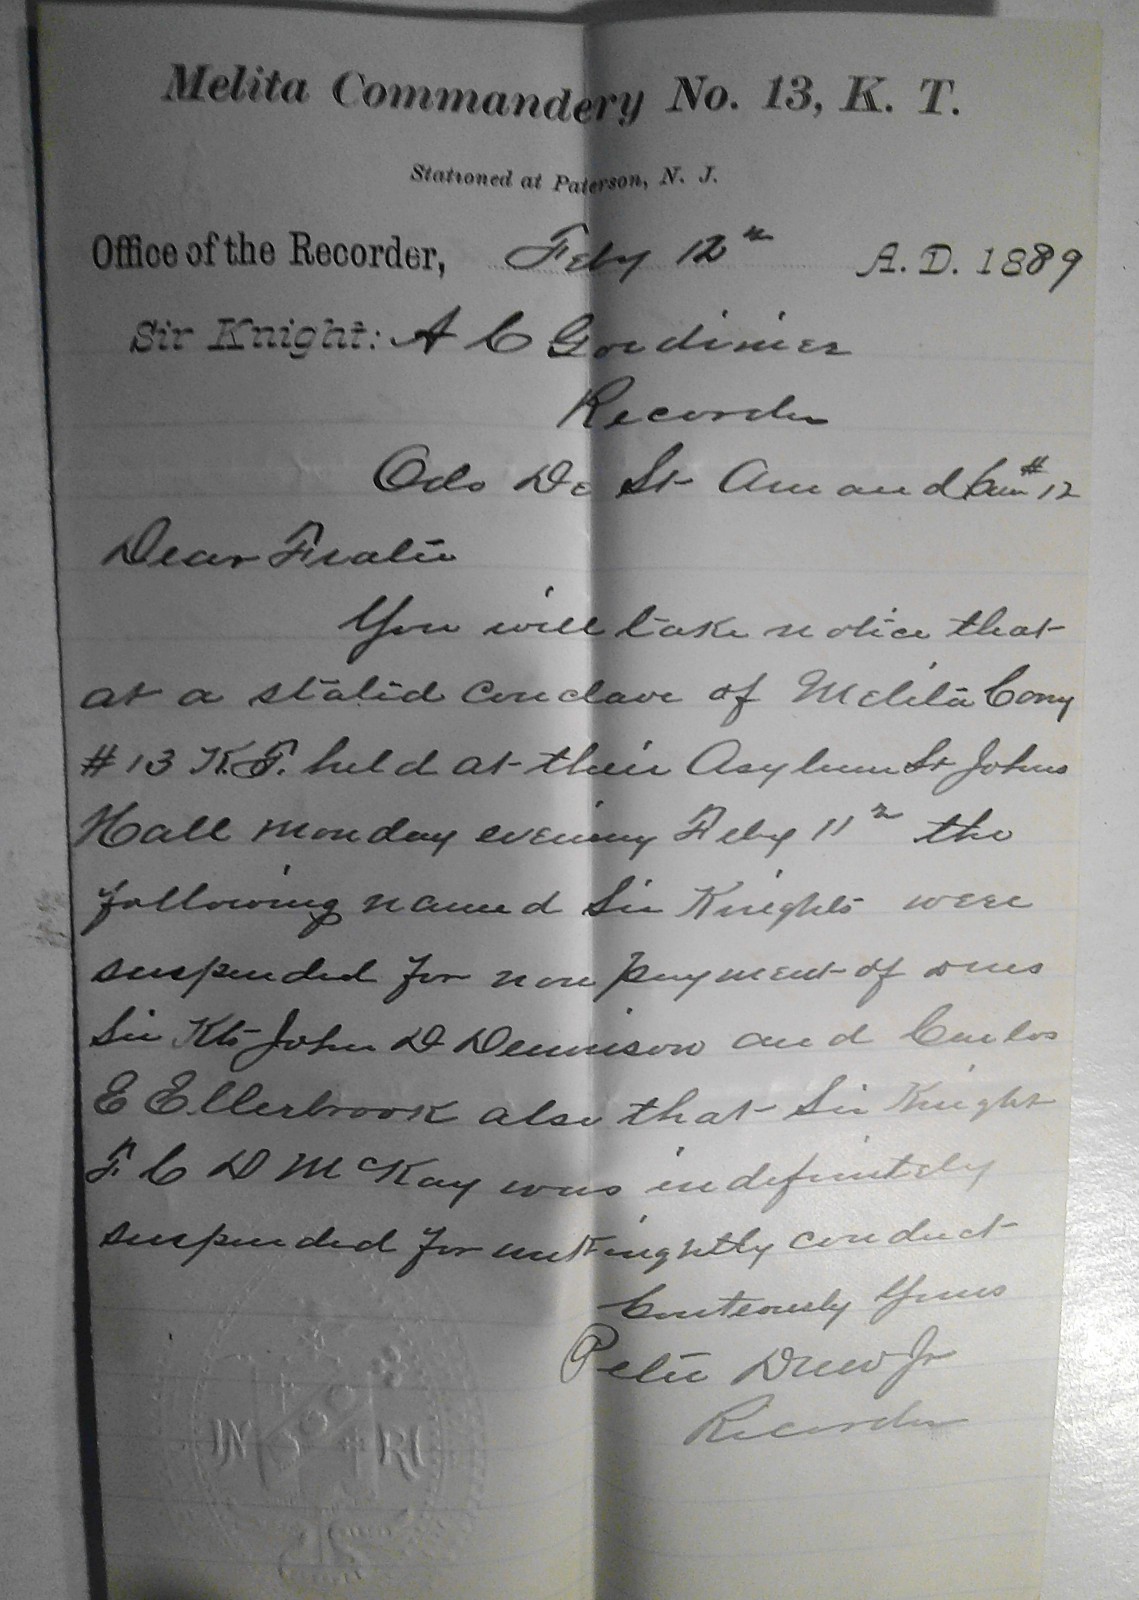 Melita Commandery No. 13, K. T.
Stationed at Paterson, N. J.
Office of the Recorder, Feby 12" A. D. 1889
Sir Knight: A C Gordinier
Recorder
Odo De St Amand Com # 12
Dear Frater
You will take notice that
at a stated conclave of Melita Comy
# 13 K.T. held at their Asylum St Johns
Hall Monday evening Feby 11" the
following named Sir Knights were
suspended for non payment of dues
Sir Kts John D Dennison and Carlos
E Ellerbrook also that Sir Knight
F. C D McKay was indefinitely
suspended for unKnightly conduct
Courteously Yours
Peter Drew Jr
Recorder
IN RI